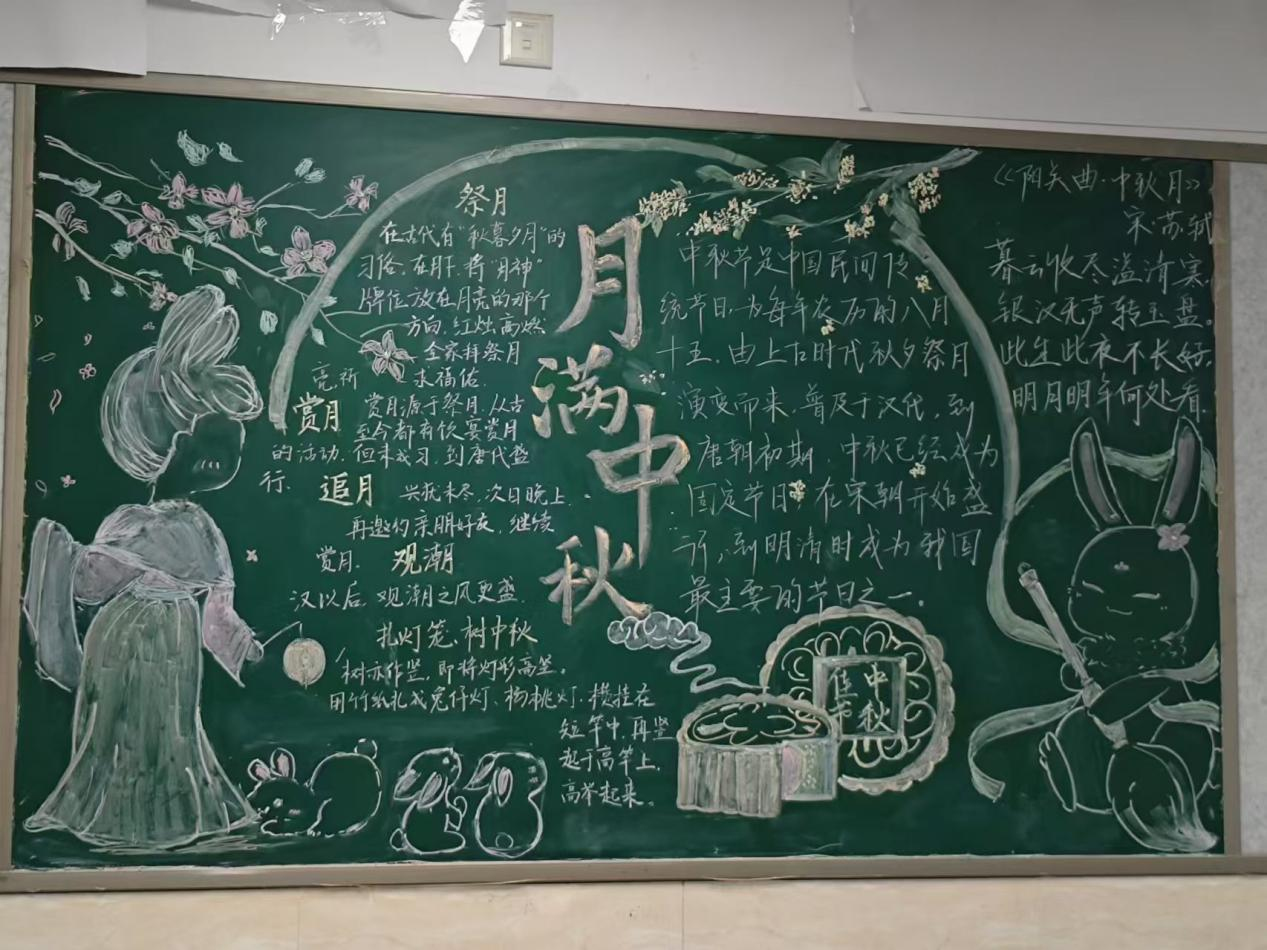 祭月
在古代有“秋暮夕月”的
习俗。在月下，将“月神”
牌位放在月亮的那个
方向，红烛高燃
全家拜祭月
亮，祈求福佑．
赏月
赏月源于祭月．从古
至今都有饮宴赏月
的活动．但未成习，到唐代盛
行．
追月
兴犹未尽．次日晚上．
再邀约亲朋好友．继续
赏月．
观潮
汉以后．观潮之风更盛．
扎灯笼、树中秋
树亦作竖，即将灯彩高竖。
用竹纸扎成兔仔灯、杨桃灯．横挂在
短竿中．再竖
起于高竿上．
高举起来。
月
满
中
秋
中秋节是中国民间传
统节日．为每年农历的八月
十五．由上古时代秋夕祭月
演变而来．普及于汉代，到
唐朝初期．中秋已经成为
固定节日．在宋朝开始盛
行，到明清时成为我国
最主要的节日之一。
中秋
佳节
《阳关曲·中秋月》
宋苏轼
暮云收尽溢清寒．
银汉无声转玉盘。
此生此夜不长好．
明月明年何处看．